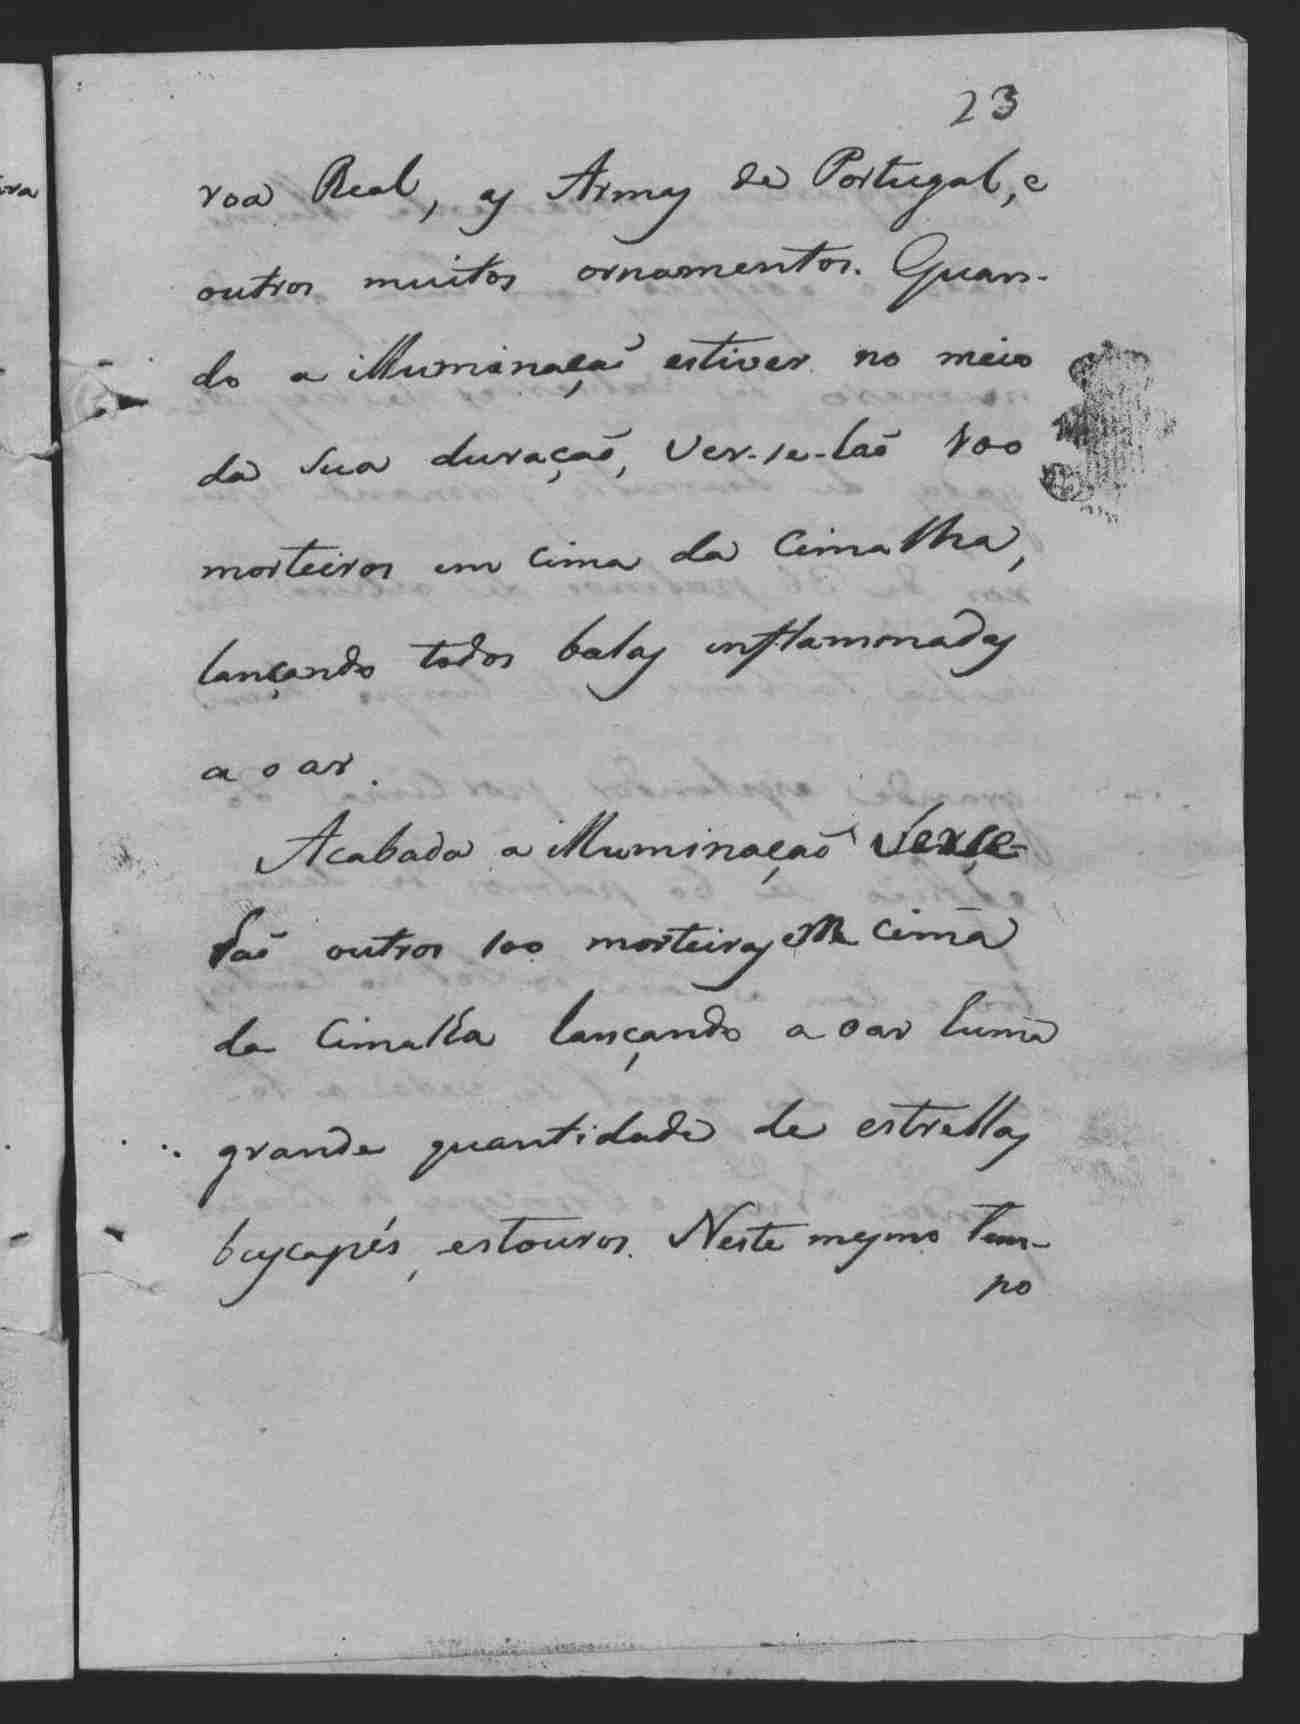 23
roa Real, as Armas de Portugal, e
outros muitos ornamentos. Quan-
do a illuminaçaõ estiver no meio
da sua duraçaõ, ver-se-laõ 100
morteiros em cima da Cimalha,
lançando todos balas inflammadas
a o ar.
Acabada a illuminaçaõ ver-se-
laõ outros 100 morteiros em cima
da Cimalha lançando a o ar huma
grande quantidade de estrellas
buscapés, estouros. Neste mesmo tem-
po